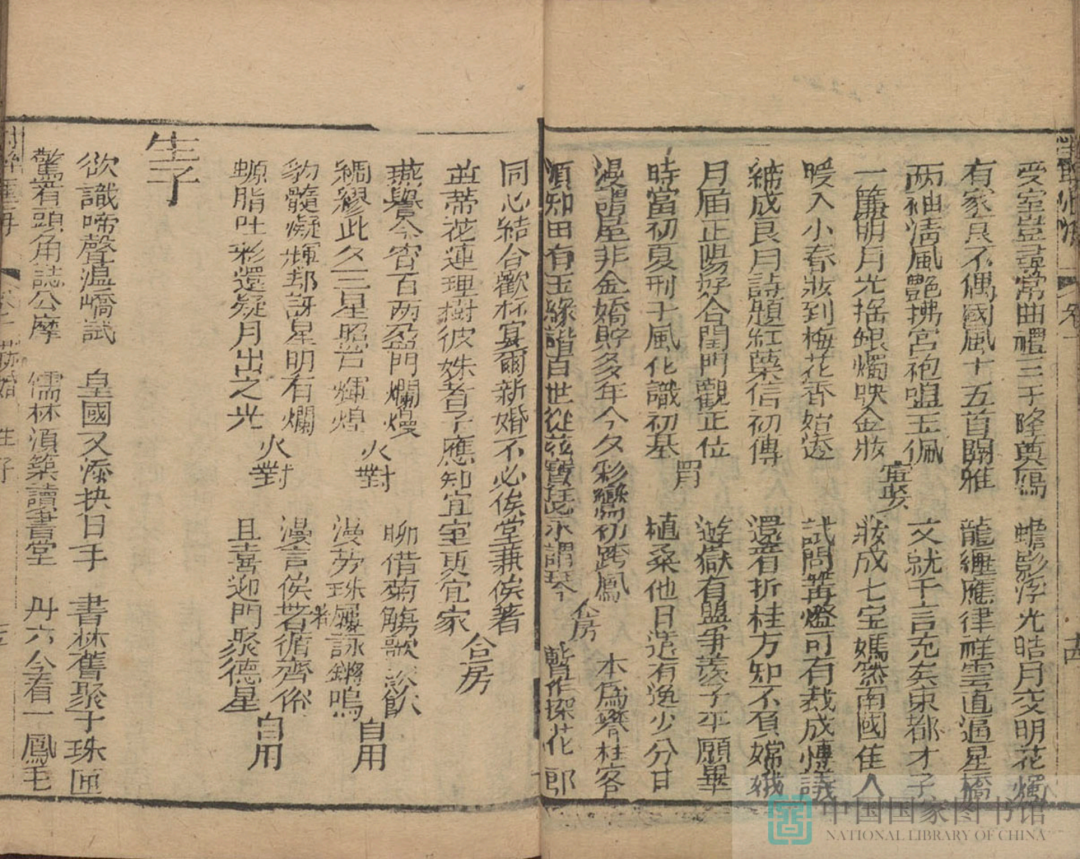 受室豈尋常曲禮三千降奠鴈　蟾影浮光皓月交明花燭
有家良不偶國風十五首關雎　龍纏應律祥雲直逼星橋
两袖清風艷拂宮袍映玉佩　文就千言充矣東都才子
一簾明月光搖銀燭映金妝　冥娶　妝成七宝嫣然南國佳人
暖入小春妝到梅花香始透　試問篝燈可有裁成傳議
締成良月詩題紅葉信初傳　還看折桂方知不負嫦娥
月届正陽游合閏門觀正位　四月　遊嶽有盟爭羨子平願畢
時當初夏刑于風化識初基　植桑他日造有逸少分甘
漫謂屋非金嬌貯多年今夕彩鸞初跨鳳　合房　本為攀桂客
須知田有玉緣諧百世從兹寶瑟永調琴　暫作探花郎
同心結合歡杯宴爾新婚不必俟堂兼俟著　合房
並蒂花連理樹彼姝者子應知宜室更宜家
燕譽今宵百两盈門爛熳　火對　聊借菊觴歌飲
綢繆此夕三星照户輝煌　漫勞珠履詠鏘鳴　自用
豹髓凝輝却訝星明有爛　火對　漫言俟著循齊俗
螈脂吐彩還疑月出之光　且喜迎門聚德星　自用
生子
欲識啼聲温嶠試　皇國又添抉日手　書林舊聚千珠匣
驚看頭角誌公摩　儒林須築讀書堂　丹穴今看一鳳毛
生子
中国国家图书馆
NATIONAL LIBRARY OF CHINA